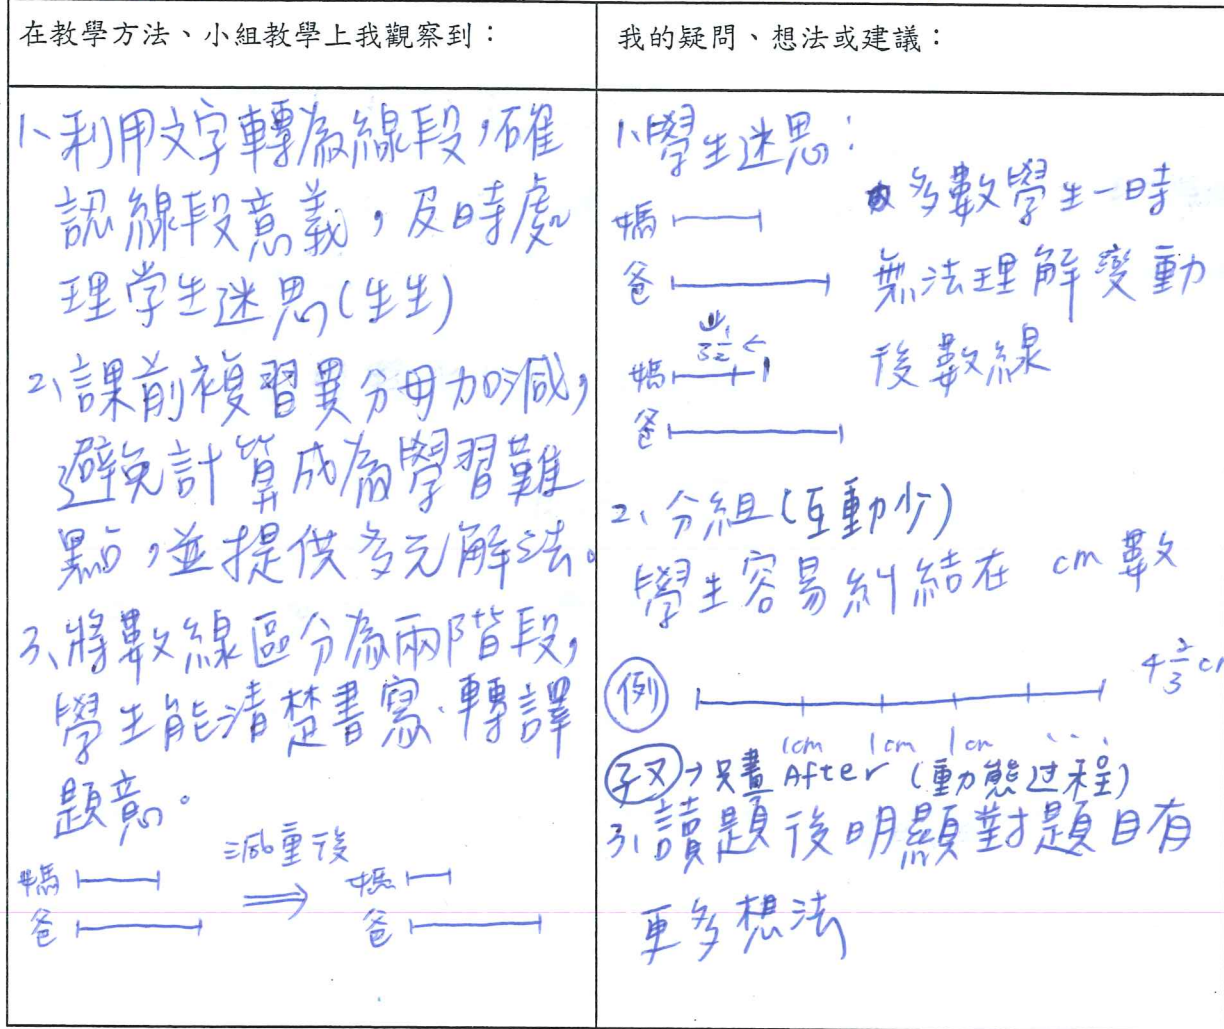 在教學方法、小組教學上我觀察到：
1、利用文字轉為線段，確
認線段意義，及時處
理学生迷思(生生)
2、課前複習異分母加減，
避免計算成為學習難
點，並提供多元解法。
3、將數線區分為兩階段，
學生能清楚書寫、轉譯
題意。
媽
爸
減重後
媽
爸
我的疑問、想法或建議：
1、學生迷思：
媽
爸
多數學生一時
無法理解變動
後數線
媽
爸
2、分組(互動少)
學生容易糾結在 cm 數
例
4 2/3 cm
1cm 1cm 1cm ...
→只畫 After (動態过程)
3、讀題後明顯對題目有
更多想法